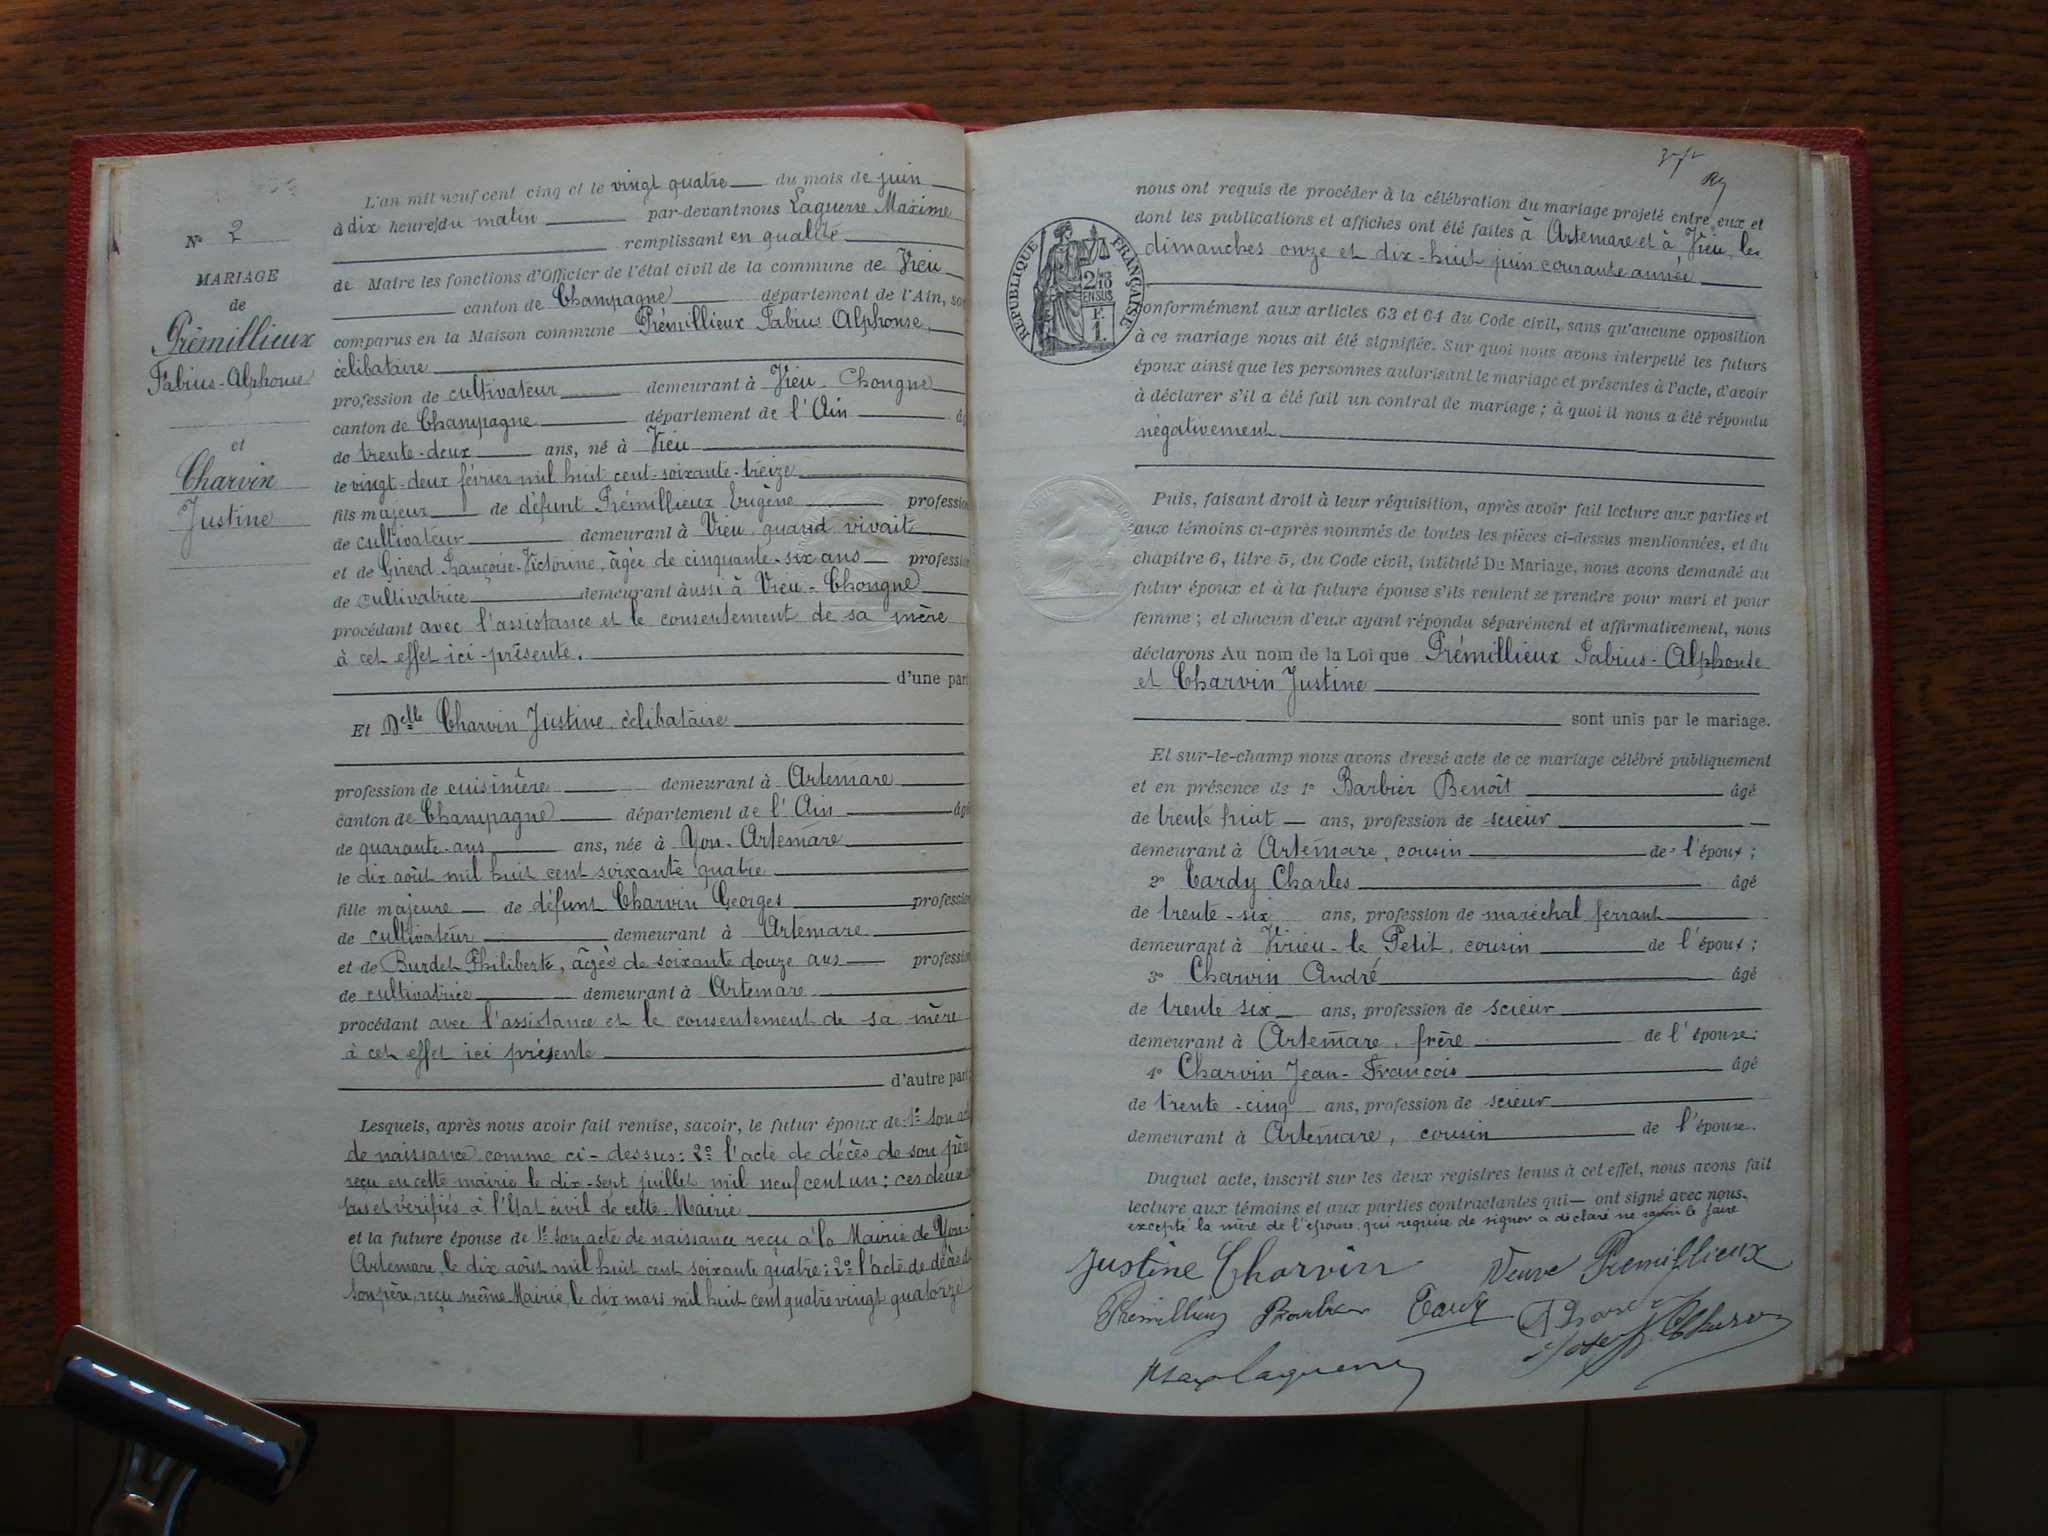 N° 2
MARIAGE
de
Prémillieux
Fabius-Alphonse
et
Charvin
Justine
L'an mil neuf cent cinq et le vingt quatre du mois de juin
à dix heures du matin par-devant nous Laguerre Maxime
remplissant en qualité
de Maire les fonctions d'Officier de l'état civil de la commune de Vieu
canton de Champagne département de l'Ain, son
comparus en la Maison commune Prémillieux Fabius Alphonse,
célibataire
profession de cultivateur demeurant à Vieu-Chongne
canton de Champagne département de l'Ain âg
de trente-deux ans, né à Vieu
le vingt-deux février mil huit cent-soixante-treize
fils majeur de défunt Prémillieux Eugène profession
de cultivateur demeurant à Vieu, quand vivait
et de Girerd Françoise-Victorine, âgée de cinquante-six ans profession
de cultivatrice demeurant aussi à Vieu-Chongne
procédant avec l'assistance et le consentement de sa mère
à cet effet ici-présente.
d'une part
Et Delle Charvin Justine, célibataire
profession de cuisinière demeurant à Artemare
canton de Champagne département de l'Ain âgé
de quarante-ans ans, née à Yon-Artemare
le dix août mil huit cent soixante quatre
fille majeure de défunt Charvin Georges profession
de cultivateur demeurant à Artemare
et de Burdet Philiberte, âgée de soixante douze ans profession
de cultivatrice demeurant à Artemare
procédant avec l'assistance et le consentement de sa mère
à cet effet ici présente
d'autre part
Lesquels, après nous avoir fait remise, savoir, le futur époux de: 1° son ac
de naissance comme ci-dessus: 2° l'acte de décès de son père
reçu en cette mairie le dix-sept juillet mil neuf cent un: ces deux
lus et vérifiés à l'Etat civil de cette Mairie
et la future épouse de 1° son acte de naissance reçu à la Mairie de Yon-
Artemare, le dix août mil huit cent soixante quatre: 2° l'acte de décès de
son père, reçu même Mairie, le dix mars mil huit cent quatre vingt quatorze
nous ont requis de procéder à la célébration du mariage projeté entre eux et
dont les publications et affiches ont été faites à Artemare et à Vieu, les
dimanches onze et dix-huit juin courante année
RÉPUBLIQUE FRANÇAISE
2/10
EN SUS
F.
1
conformément aux articles 63 et 64 du Code civil, sans qu'aucune opposition
à ce mariage nous ait été signifiée. Sur quoi nous avons interpellé les futurs
époux ainsi que les personnes autorisant le mariage et présentes à l'acte, d'avoir
à déclarer s'il a été fait un contrat de mariage; à quoi il nous a été répondu
négativement
Puis, faisant droit à leur réquisition, après avoir fait lecture aux parties et
aux témoins ci-après nommés de toutes les pièces ci-dessus mentionnées, et du
chapitre 6, titre 5, du Code civil, intitulé Du Mariage, nous avons demandé au
futur époux et à la future épouse s'ils veulent se prendre pour mari et pour
femme; et chacun d'eux ayant répondu séparément et affirmativement, nous
déclarons Au nom de la Loi que Prémillieux Fabius-Alphonse
et Charvin Justine
sont unis par le mariage.
Et sur-le-champ nous avons dressé acte de ce mariage célébré publiquement
et en présence de 1° Barbier Benoît âgé
de trente huit ans, profession de scieur
demeurant à Artemare, cousin de l'époux;
2° Tardy Charles âgé
de trente-six ans, profession de maréchal ferrant
demeurant à Virieu-le Petit, cousin de l'époux;
3° Charvin André âgé
de trente six ans, profession de scieur
demeurant à Artemare, frère de l'épouse;
4° Charvin Jean-François âgé
de trente-cinq ans, profession de scieur
demeurant à Artemare, cousin de l'épouse.
Duquel acte, inscrit sur les deux registres tenus à cet effet, nous avons fait
lecture aux témoins et aux parties contractantes qui ont signé avec nous.
excepté la mère de l'épouse, qui requise de signer a déclaré ne savoir le faire
Justine Charvin Veuve Prémillieux
Prémillieux Barbier Tardy
Charvin
Max Laguerre